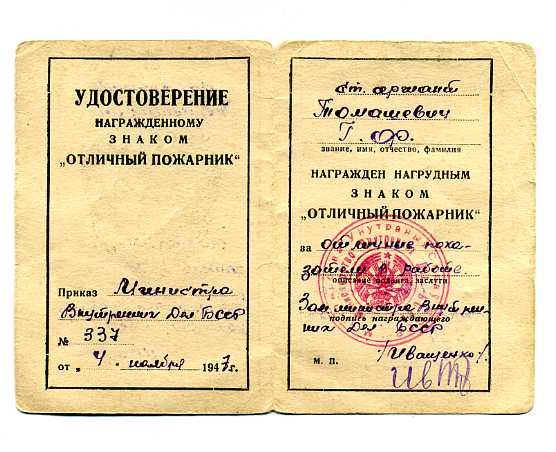 УДОСТОВЕРЕНИЕ
НАГРАЖДЕННОМУ
ЗНАКОМ
„ОТЛИЧНЫЙ ПОЖАРНИК“
Приказ Министра
Внутренних Дел БССР
№ 337
от „ 4 „ ноября 1947 г.
ст. сержант
Томашевич
Г. Ф.
звание, имя, отчество, фамилия
НАГРАЖДЕН НАГРУДНЫМ
ЗНАКОМ
„ОТЛИЧНЫЙ ПОЖАРНИК“
за отличные пока-
затели в работе.
описание подвига, заслуга
Зам. министра Внутрен-
них Дел БССР
подпись награждающего
М. П. /Иващенко/.